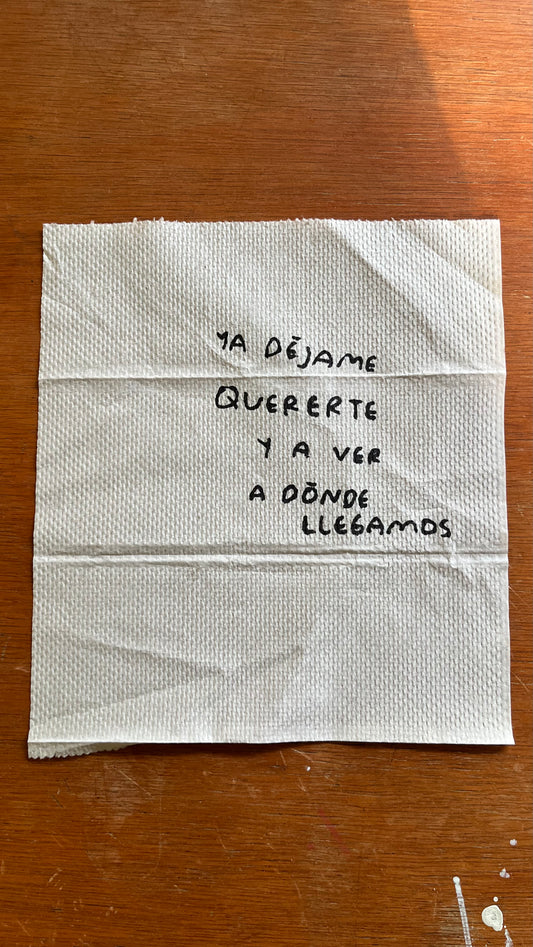 YA DÉJAME
QUERERTE
Y A VER
A DÓNDE
LLEGAMOS